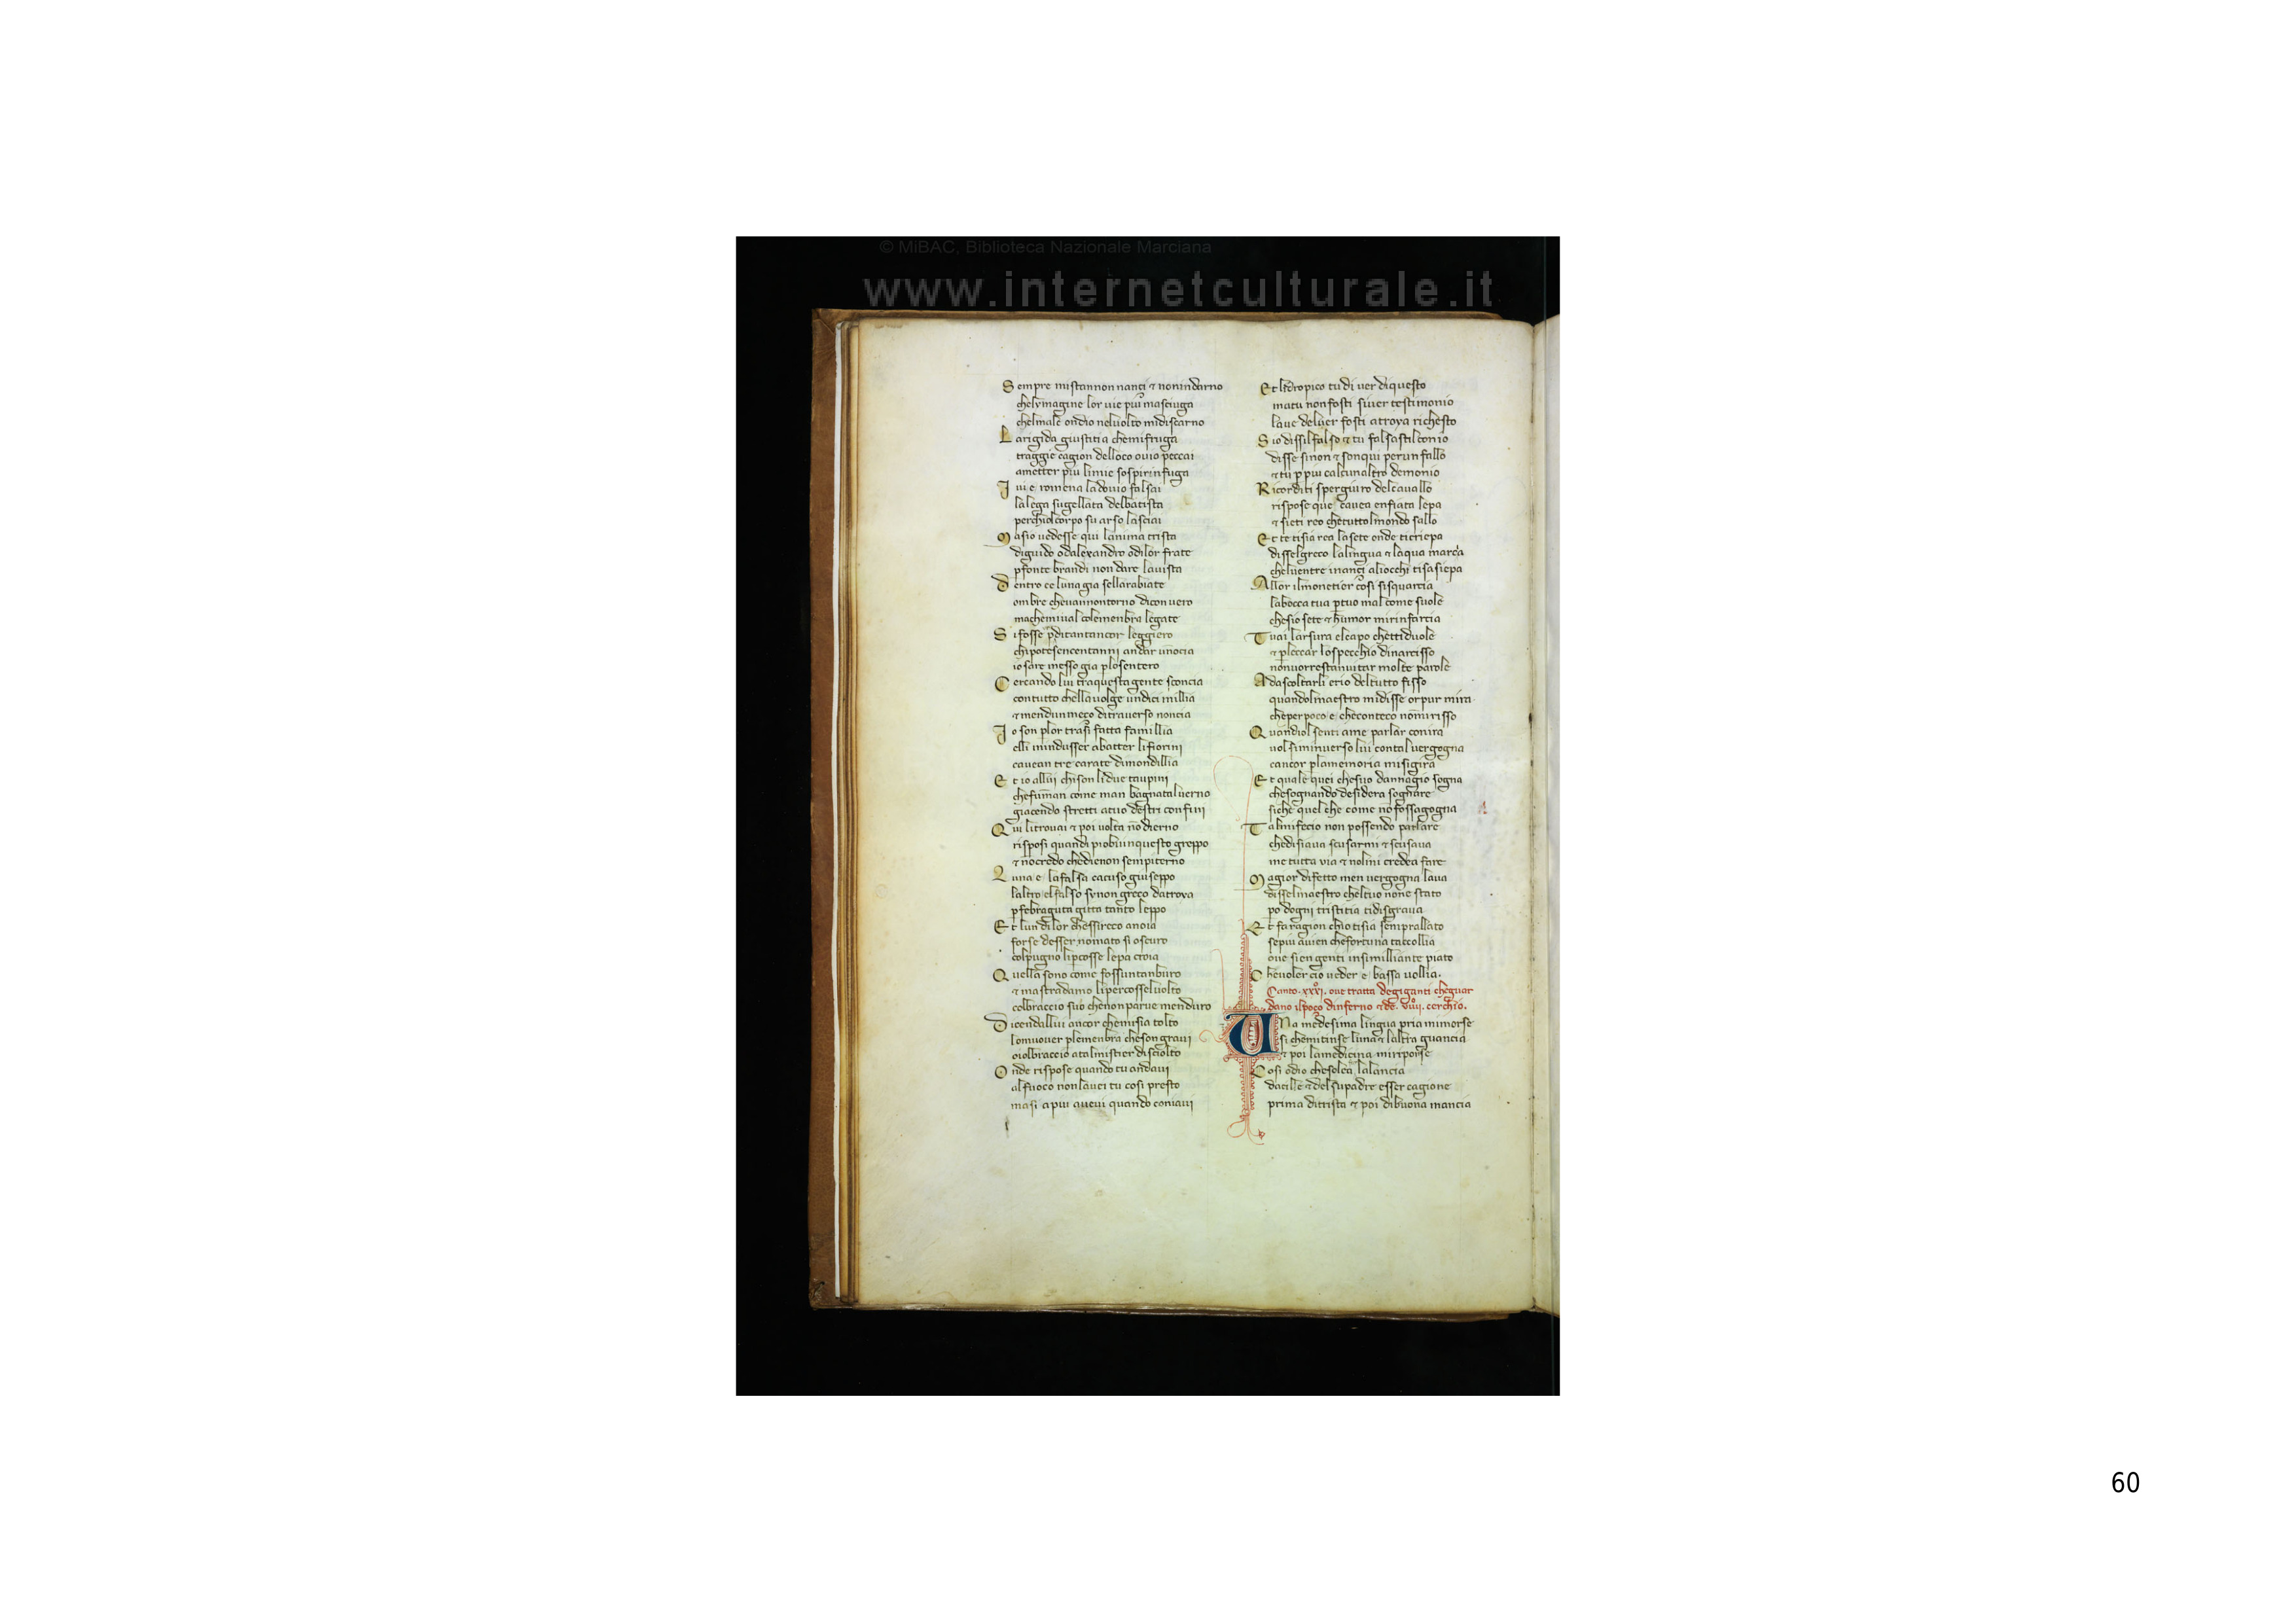 © MiBAC, Biblioteca Nazionale Marciana
www.internetculturale.it
Sempre mi stannon nanci ⁊ non indarno
chelymagine lor uie piu masciuga
chelmale ondio neluolto midiscarno
Larigida giustitia chemifruga
traggie cagion delloco ouio peccai
ametter piu limie sospir infuga
Iui e romena ladouio falsai
lalega sugellata delbatista
perchiolcorpo su arso lasciai
Masio uedesse qui lanima trista
diguido odalexandro odilor frate
pfonte brandi non dare lauista
Dentro ce luna gia sellarabiate
ombre cheuannontorno dicon uero
machemiual colemenbra legate
Sifosse pditantancor leggiero
chipotesencentanni andar unocia
io sare messo gia plosentero
Cercando lui traquesta gente sconcia
contutto chella uolge undici millia
⁊ mendunmeço ditrauerso noncia
Io son plor trasi fatta famillia
elli mindusser abatter lifiorini
cauean tre carate dimondillia
Et io allui chison lidue taupini
chefuman come man bagnatal uerno
giacendo stretti atuo destri confini
Qui litrouai ⁊ poi uolta no dierno
risposi quandi piobbi inquesto greppo
⁊ nocredo chedienon sempiterno
Luna e lafalsa cacuso giuseppo
laltro elfalso synon greco datroya
pfebraguta gitta tanto leppo
Et lun dilor chessireco anoia
forse desser nomato si oscuro
colpugno lipcosse lepa croia
Quella sono come fossuntanburo
⁊ mastradamo lipercosseluolto
colbraccio suo chenonparue menduro
Dicendallui ancor chemisia tolto
lomuouer plemenbra cheson graui
oiolbraccio atalmistier disciolto
Onde rispose quando tu andaui
alfuoco nonlauei tu cosi presto
masi a piu aueui quando coniaui
Et lidropico tu di uer diquesto
matu nonfosti siuer testimonio
laue deluer fosti atroya richesto
Sio dissilfalso ⁊ tu falsastilconio
disse sinon ⁊ sonqui perun fallo
⁊ tu p piu calcunaltro demonio
Ricorditi spergiuro delcauallo
rispose que cauea enfiata lepa
⁊ sieti reo chetuttolmondo sallo
Et te tisia rea lasete onde ticriepa
disselgreco lalingua ⁊ laqua marcia
cheluentre inanci aliocchi tisasiepa
Allor ilmonetier cosi sisquarcia
labocca tua ptuo mal come suole
chesio sete ⁊ humor mirinfarcia
Tuai larsura elcapo chettiduole
⁊ pleccar lospecchio dinarcisso
nonuorrestanuitar molte parole
Adascoltarli erio deltutto fisso
quandolmaestro midisse orpur mira
cheperpoco e checonteco nomirisso
Quandiol senti ame parlar conira
uolsiminuerso lui contal uergogna
cancor plamemoria misigira
Et quale quei chesuo dannagio sogna
chesognando desidera sognare
siche quel che come nofossagogna
Talmifecio non possendo parlare
chedisiaua scusarmi ⁊ scusaua
me tutta via ⁊ nolmi credea fare
Magior difetto men uergogna laua
disselmaestro cheltuo none stato
po dogni tristitia tidisgraua
Et faragion chio tisia semprallato
sepiu auien chefortuna taccollia
oue sien genti insimilliante piato
Cheuoler cio ueder e bassa uollia.
Canto. xxxi. oue tratta degiganti cheguar
dano ilpoço dinferno ⁊ de. viiii. cerchio.
UNa medesima lingua pria mimorse
si chemitinse luna ⁊ laltra guancia
⁊ poi lamedicina miriporse
Cosi odio chesolea lalancia
dacille ⁊ del supadre esser cagione
prima ditrista ⁊ poi dibuona mancia
60